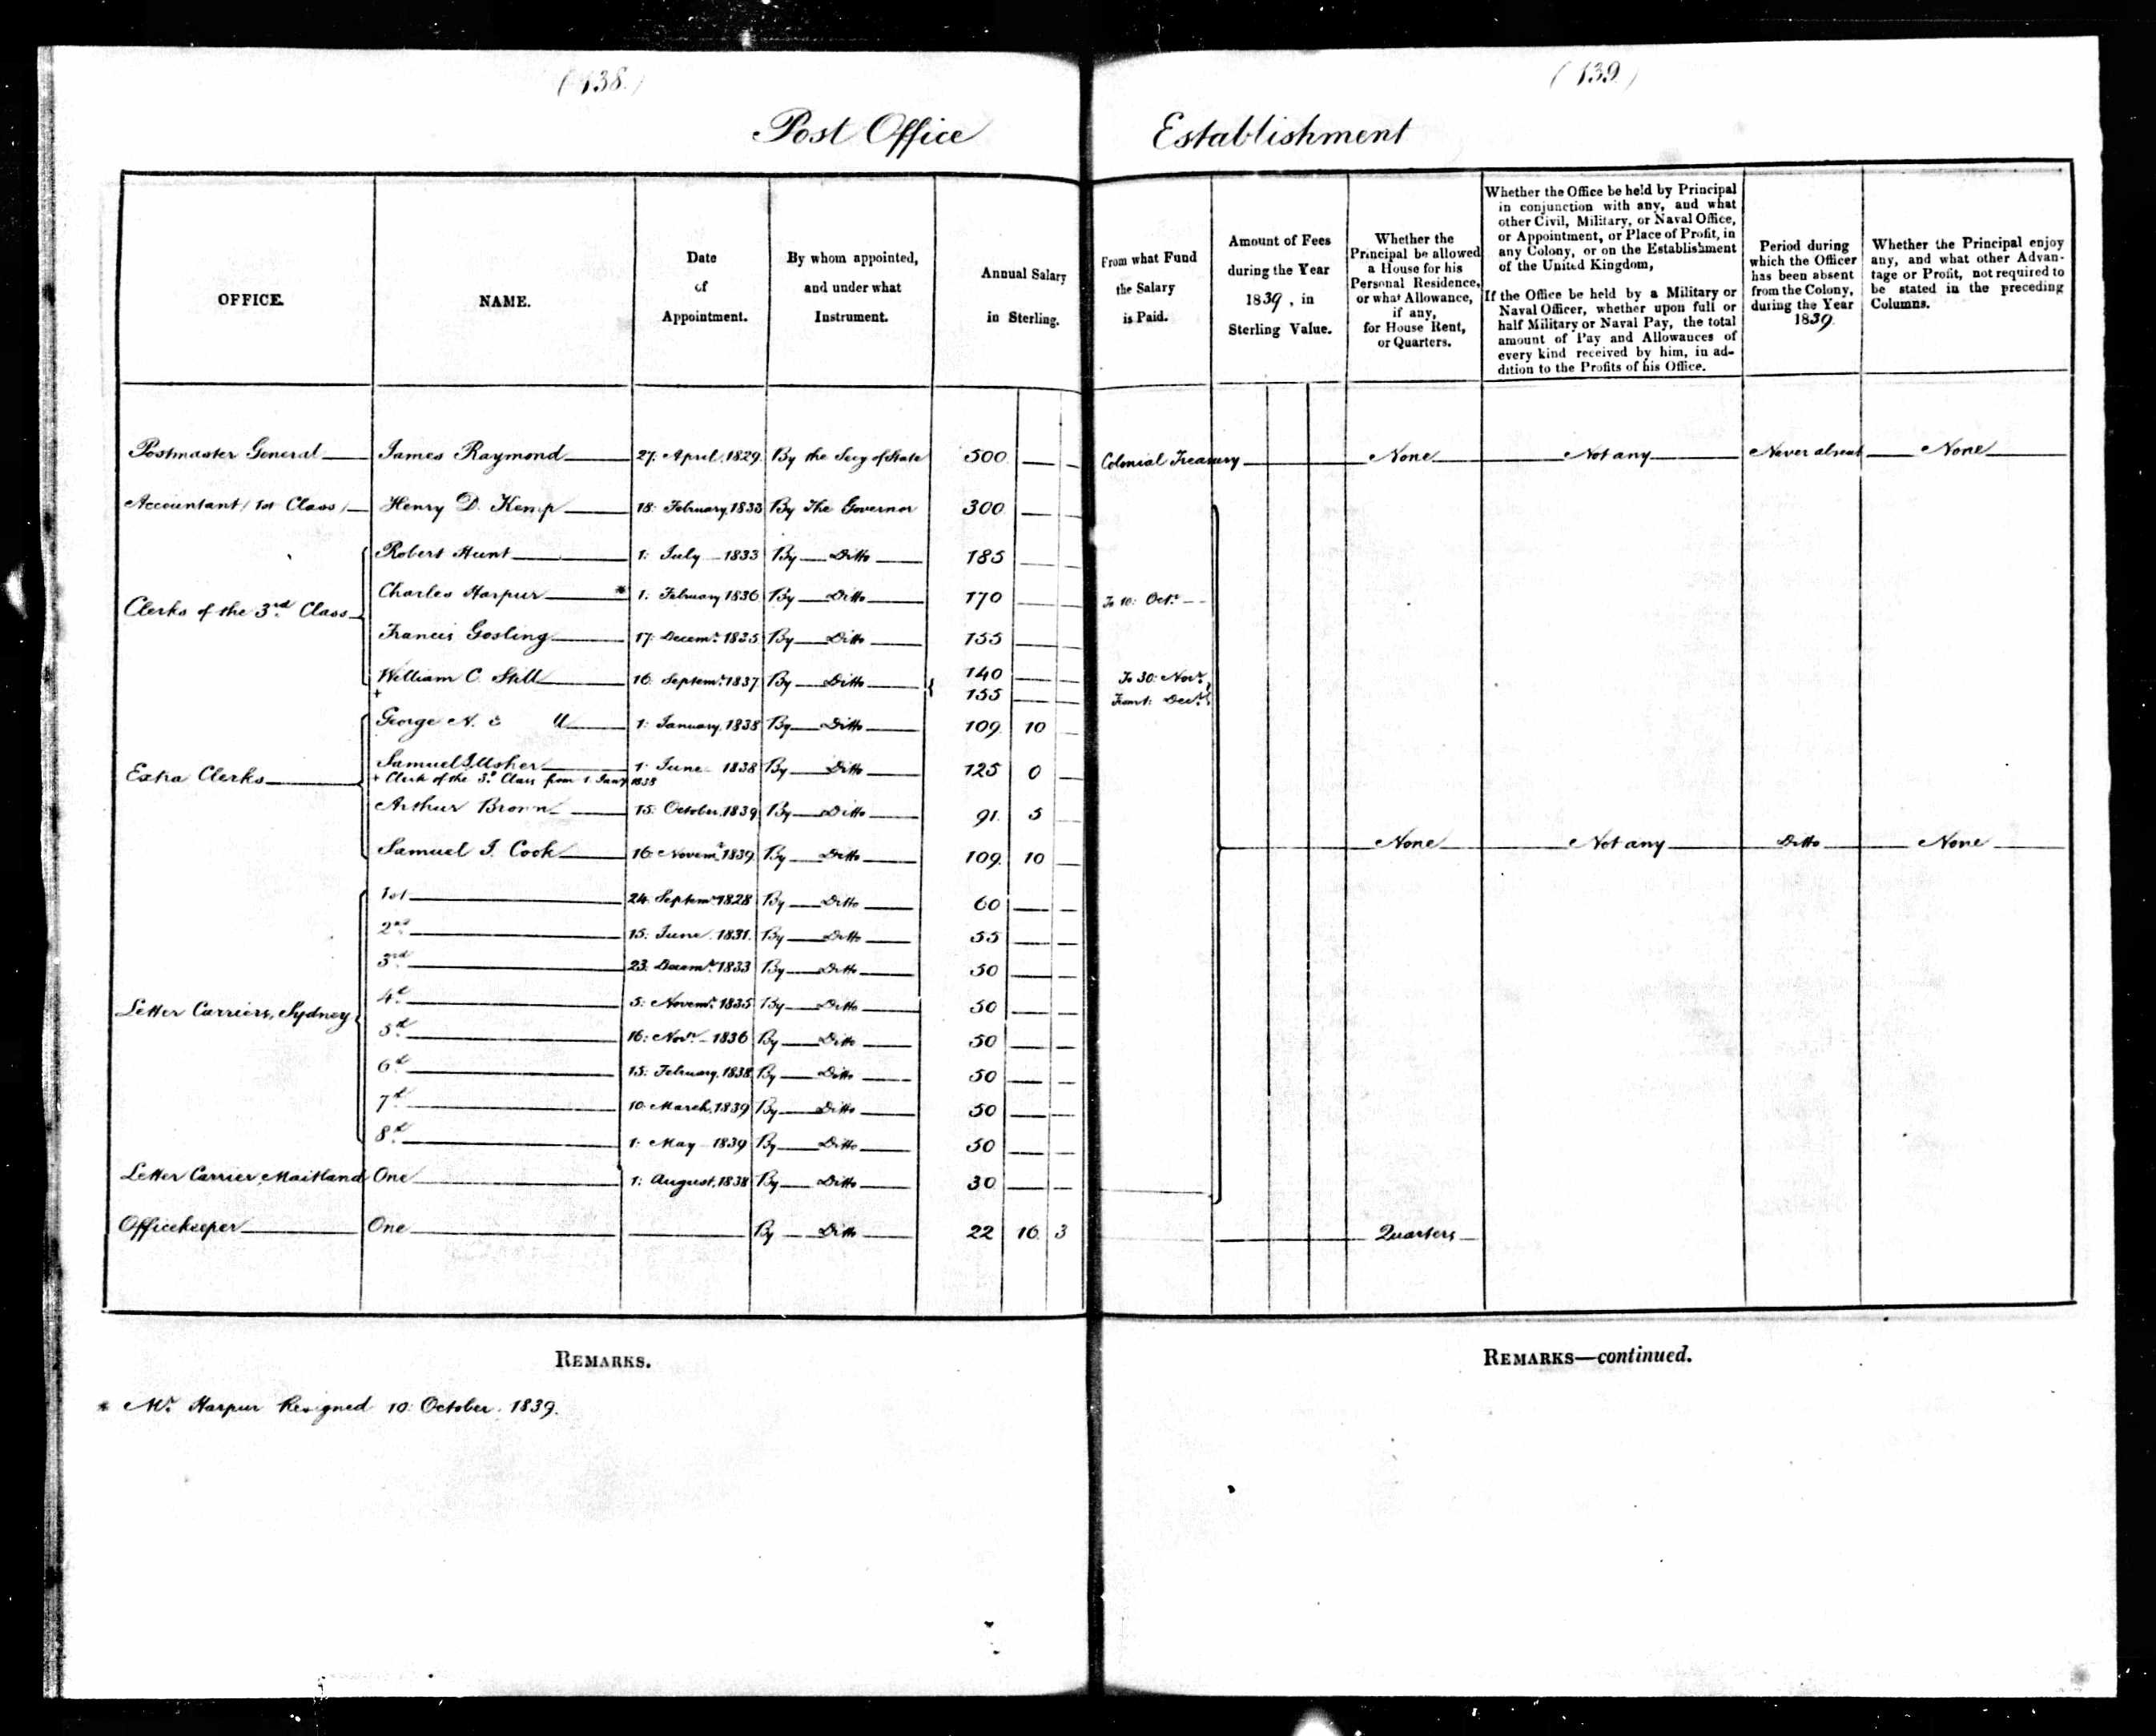 (138.)
(139)
Post Office Establishment
OFFICE.
NAME.
Date
of
Appointment.
By whom appointed,
and under what
Instrument.
Annual Salary
in Sterling.
From what Fund
the Salary
is Paid.
Amount of Fees
during the Year
1839, in
Sterling Value.
Whether the
Principal be allowed
a House for his
Personal Residence,
or what Allowance,
if any,
for House Rent,
or Quarters.
Whether the Office be held by Principal
in conjunction with any, and what
other Civil, Military, or Naval Office,
or Appointment, or Place of Profit, in
any Colony, or on the Establishment
of the United Kingdom,
If the Office be held by a Military or
Naval Officer, whether upon full or
half Military or Naval Pay, the total
amount of Pay and Allowances of
every kind received by him, in ad-
dition to the Profits of his Office.
Period during
which the Officer
has been absent
from the Colony,
during the Year
1839.
Whether the Principal enjoy
any, and what other Advan-
tage or Profit, not required to
be stated in the preceding
Columns.
Postmaster General James Raymond 27. April, 1829 By the Secy of State 500 Colonial Treasury None Not any Never absent None
Accountant (1st Class) Henry D. Kemp 18: February, 1833 By The Governor 300
Robert Hunt 1: July 1833 By Ditto 185
Clerks of the 3rd Class
Charles Harpur * 1. February 1836 By Ditto 170 To 10: Octr.
Francis Gosling 17: Decemr. 1835 By Ditto 155
William C. Still 16: Septemr. 1837 By Ditto 140 To 30: Novr.
+ 155 From 1: Decr.
George N. 1: January, 1838 By Ditto 109. 10
Extra Clerks
Samuel J. Usher 1: June 1838 By Ditto 125 0
+ Clerk of the 3d. Class from 1 Jany 1838
Arthur Brown 15: October, 1839 By Ditto 91. 5
Samuel J. Cook 16: Novemr. 1839 By Ditto 109. 10 None Not any Ditto None
Letter Carriers, Sydney
1st 24. Septemr. 1828 By Ditto 60
2nd 15: June. 1831. By Ditto 55
3rd 23: Decemr. 1833 By Ditto 50
4th 5: Novemr. 1835 By Ditto 50
5th 16: Novr. 1836 By Ditto 50
6th 15: February, 1838 By Ditto 50
7th 10. March, 1839 By Ditto 50
8th 1: May 1839 By Ditto 50
Letter Carrier, Maitland One 1: August, 1838 By Ditto 30
Officekeeper One By Ditto 22 16. 3 Quarters
REMARKS.
REMARKS—continued.
* Mr. Harpur Resigned 10: October. 1839.